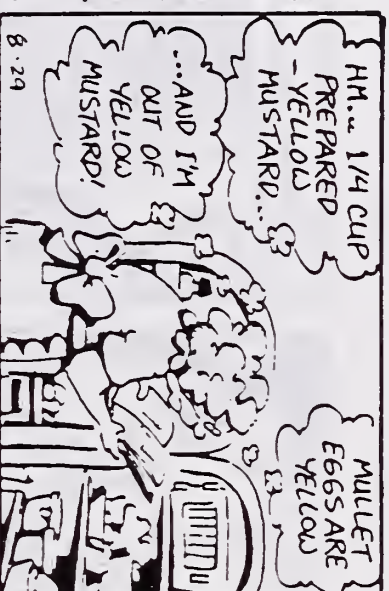 HM... 1/4 CUP
PREPARED
-YELLOW
MUSTARD...
...AND I'M
OUT OF
YELLOW
MUSTARD!
MULLET
EGGS ARE
YELLOW
8·29